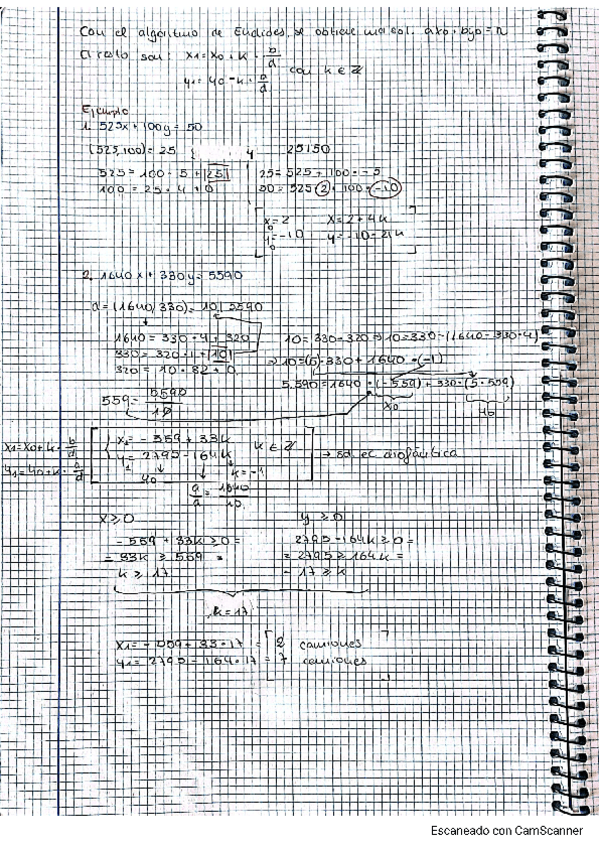 Con el algoritmo de Euclides, se obtiene una sol. ax0 + by0 = n
El resto son: x1 = x0 + k · b/d
y1 = y0 - k · a/d con k ∈ Z
Ejemplo
1. 525x + 100y = 50
(525,100) = 25 y 25|50
525 = 100 · 5 + 25 25 = 525 + 100 · -5
100 = 25 · 4 + 0 50 = 525 · 2 + 100 · -10
x0 = 2 x = 2 + 4k
y0 = -10 y = -10 - 21k
2. 1640x + 330y = 5590
d = (1640, 330) = 10 | 5590
1640 = 330 · 4 + 320 10 = 330 - 320 ⇒ 10 = 330 - (1640 - 330 · 4)
330 = 320 · 1 + 10 ⇒ 10 = (5) · 330 + 1640 · (-1)
320 = 10 · 32 + 0 5.590 = 1640 · (-559) + 330 · (5 · 559)
559 = 5590/10 x0 y0
x1 = x0 + k · b/d x1 = -559 + 33k k ∈ Z
y1 = y0 + k · a/d y1 = 2795 - 164k → sol. ec. diofántica
y0 k = -1
a/d = 1640/10
x ≥ 0 y ≥ 0
-559 + 33k ≥ 0 = 2795 - 164k ≥ 0 =
= 33k ≥ 559 = = 2795 ≥ 164k =
k ≥ 17 - 17 ≥ k
k = 17
x1 = -559 + 33 · 17 = 2 camiones
y1 = 2795 - 164 · 17 = 7 camiones
Escaneado con CamScanner